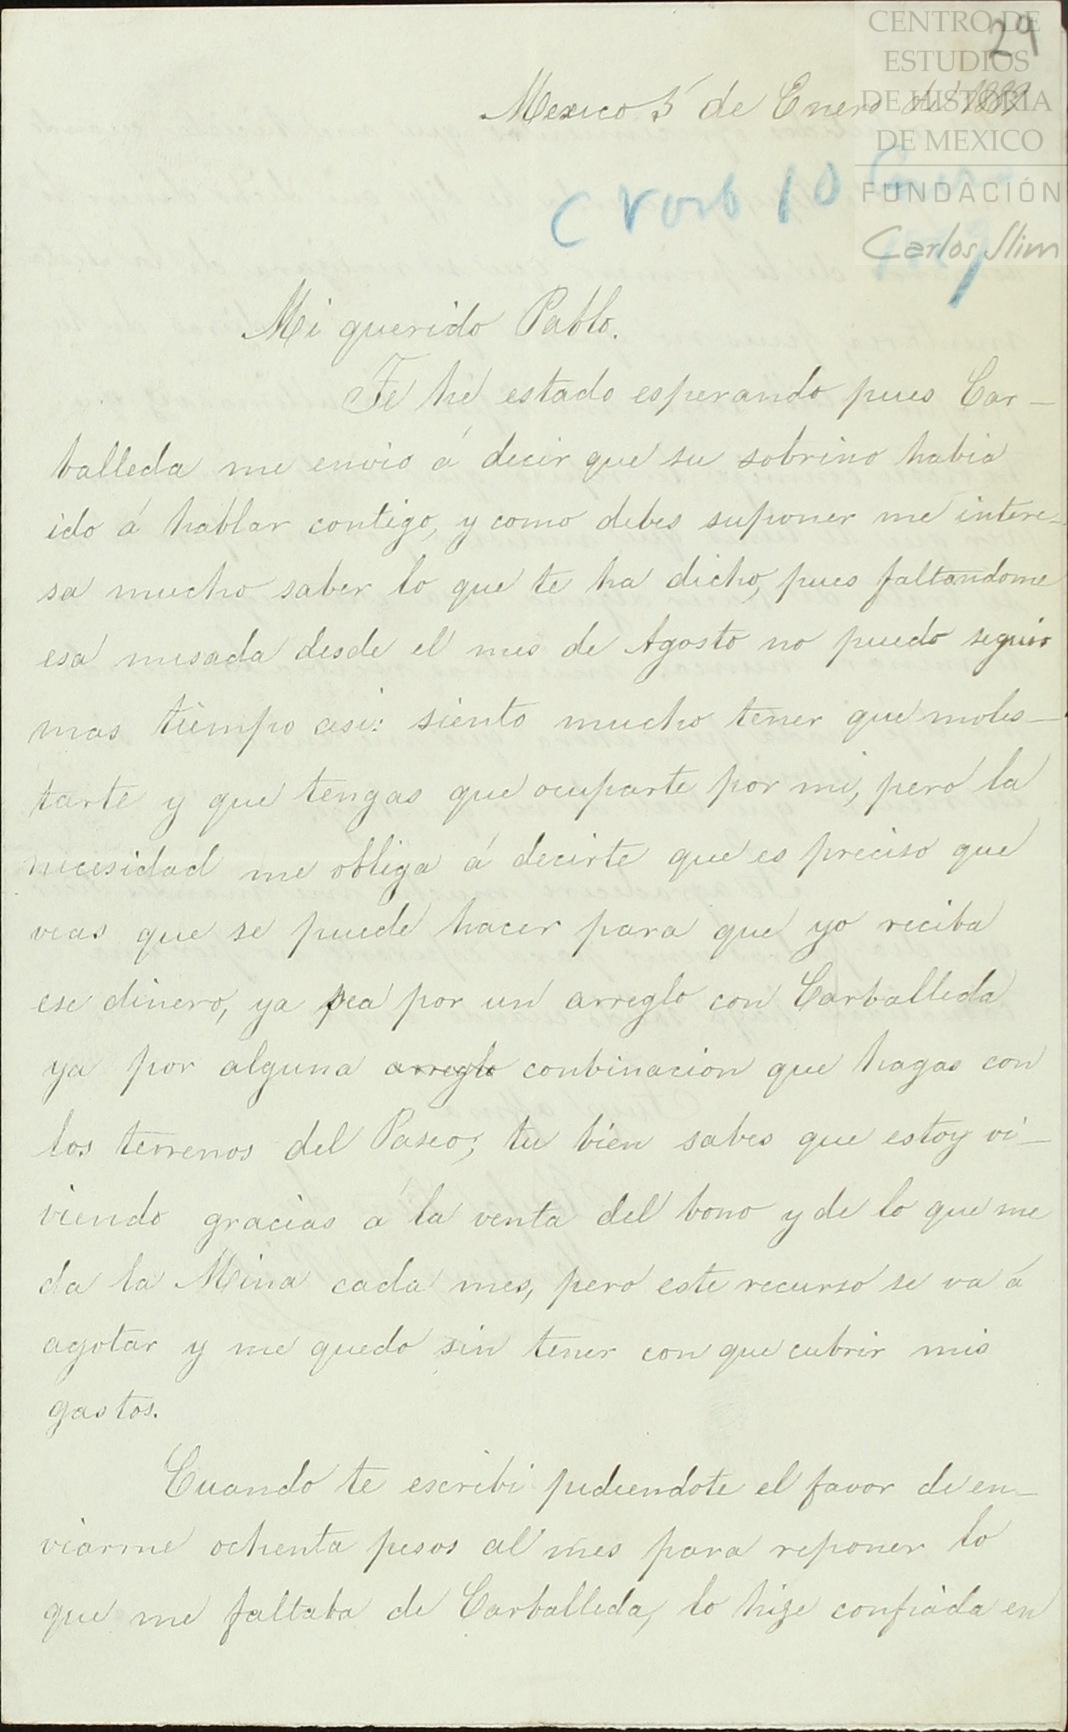 CENTRO DE
ESTUDIOS
DE HISTORIA
DE MEXICO
FUNDACIÓN
Carlos Slim
29
Mexico 5 de Enero de
10
Mi querido Pablo.
Te hé estado esperando pues Car-
balleda me envio á decir que su sobrino habia
ido á hablar contigo, y como debes suponer me intere-
sa mucho saber lo que te ha dicho, pues faltandome
esa mesada desde el mes de Agosto no puedo seguir
mas tiempo asi: siento mucho tener que moles-
tarte y que tengas que ocuparte por mi, pero la
necesidad me obliga á decirte que es preciso que
veas que se puede hacer para que yo reciba
ese dinero, ya sea por un arreglo con Carballeda
ya por alguna arreglo conbinacion que hagas con
los terrenos del Paseo; tu bien sabes que estoy vi-
viendo gracias á la venta del bono y de lo que me
da la Mina cada mes, pero este recurso se va á
agotar y me quedo sin tener con que cubrir mis
gastos.
Cuando te escribi pidiendote el favor de en-
viarme ochenta pesos al mes para reponer lo
que me faltaba de Carballeda, lo hize confiada en